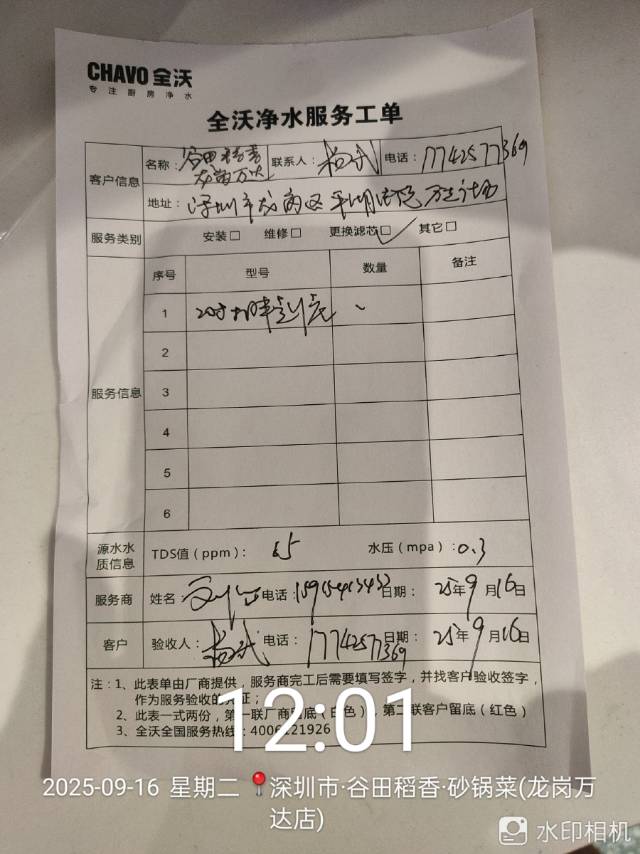 CHAVO 全沃
专注厨房净水
全沃净水服务工单
客户信息
名称：谷田稻香
龙岗万达
联系人：杨武
电话：17742577369
地址：深圳市龙岗区 万达广场
服务类别
安装□ 维修□ 更换滤芯□✓ 其它□
服务信息
序号 型号 数量 备注
1 20寸
2
3
4
5
6
源水水质信息
TDS值（ppm）：65 水压（mpa）：0.3
服务商 姓名： 电话： 日期：25年9月16日
客户 验收人：杨武 电话：17742577369 日期：25年9月16日
注：1、此表单由厂商提供，服务商完工后需要填写签字，并找客户验收签字，
作为服务验收的凭证；
2、此表一式两份，第一联厂商留底（白色），第二联客户留底（红色）
3、全沃全国服务热线：4006121926
12:01
2025-09-16 星期二 深圳市·谷田稻香·砂锅菜(龙岗万
达店)
水印相机